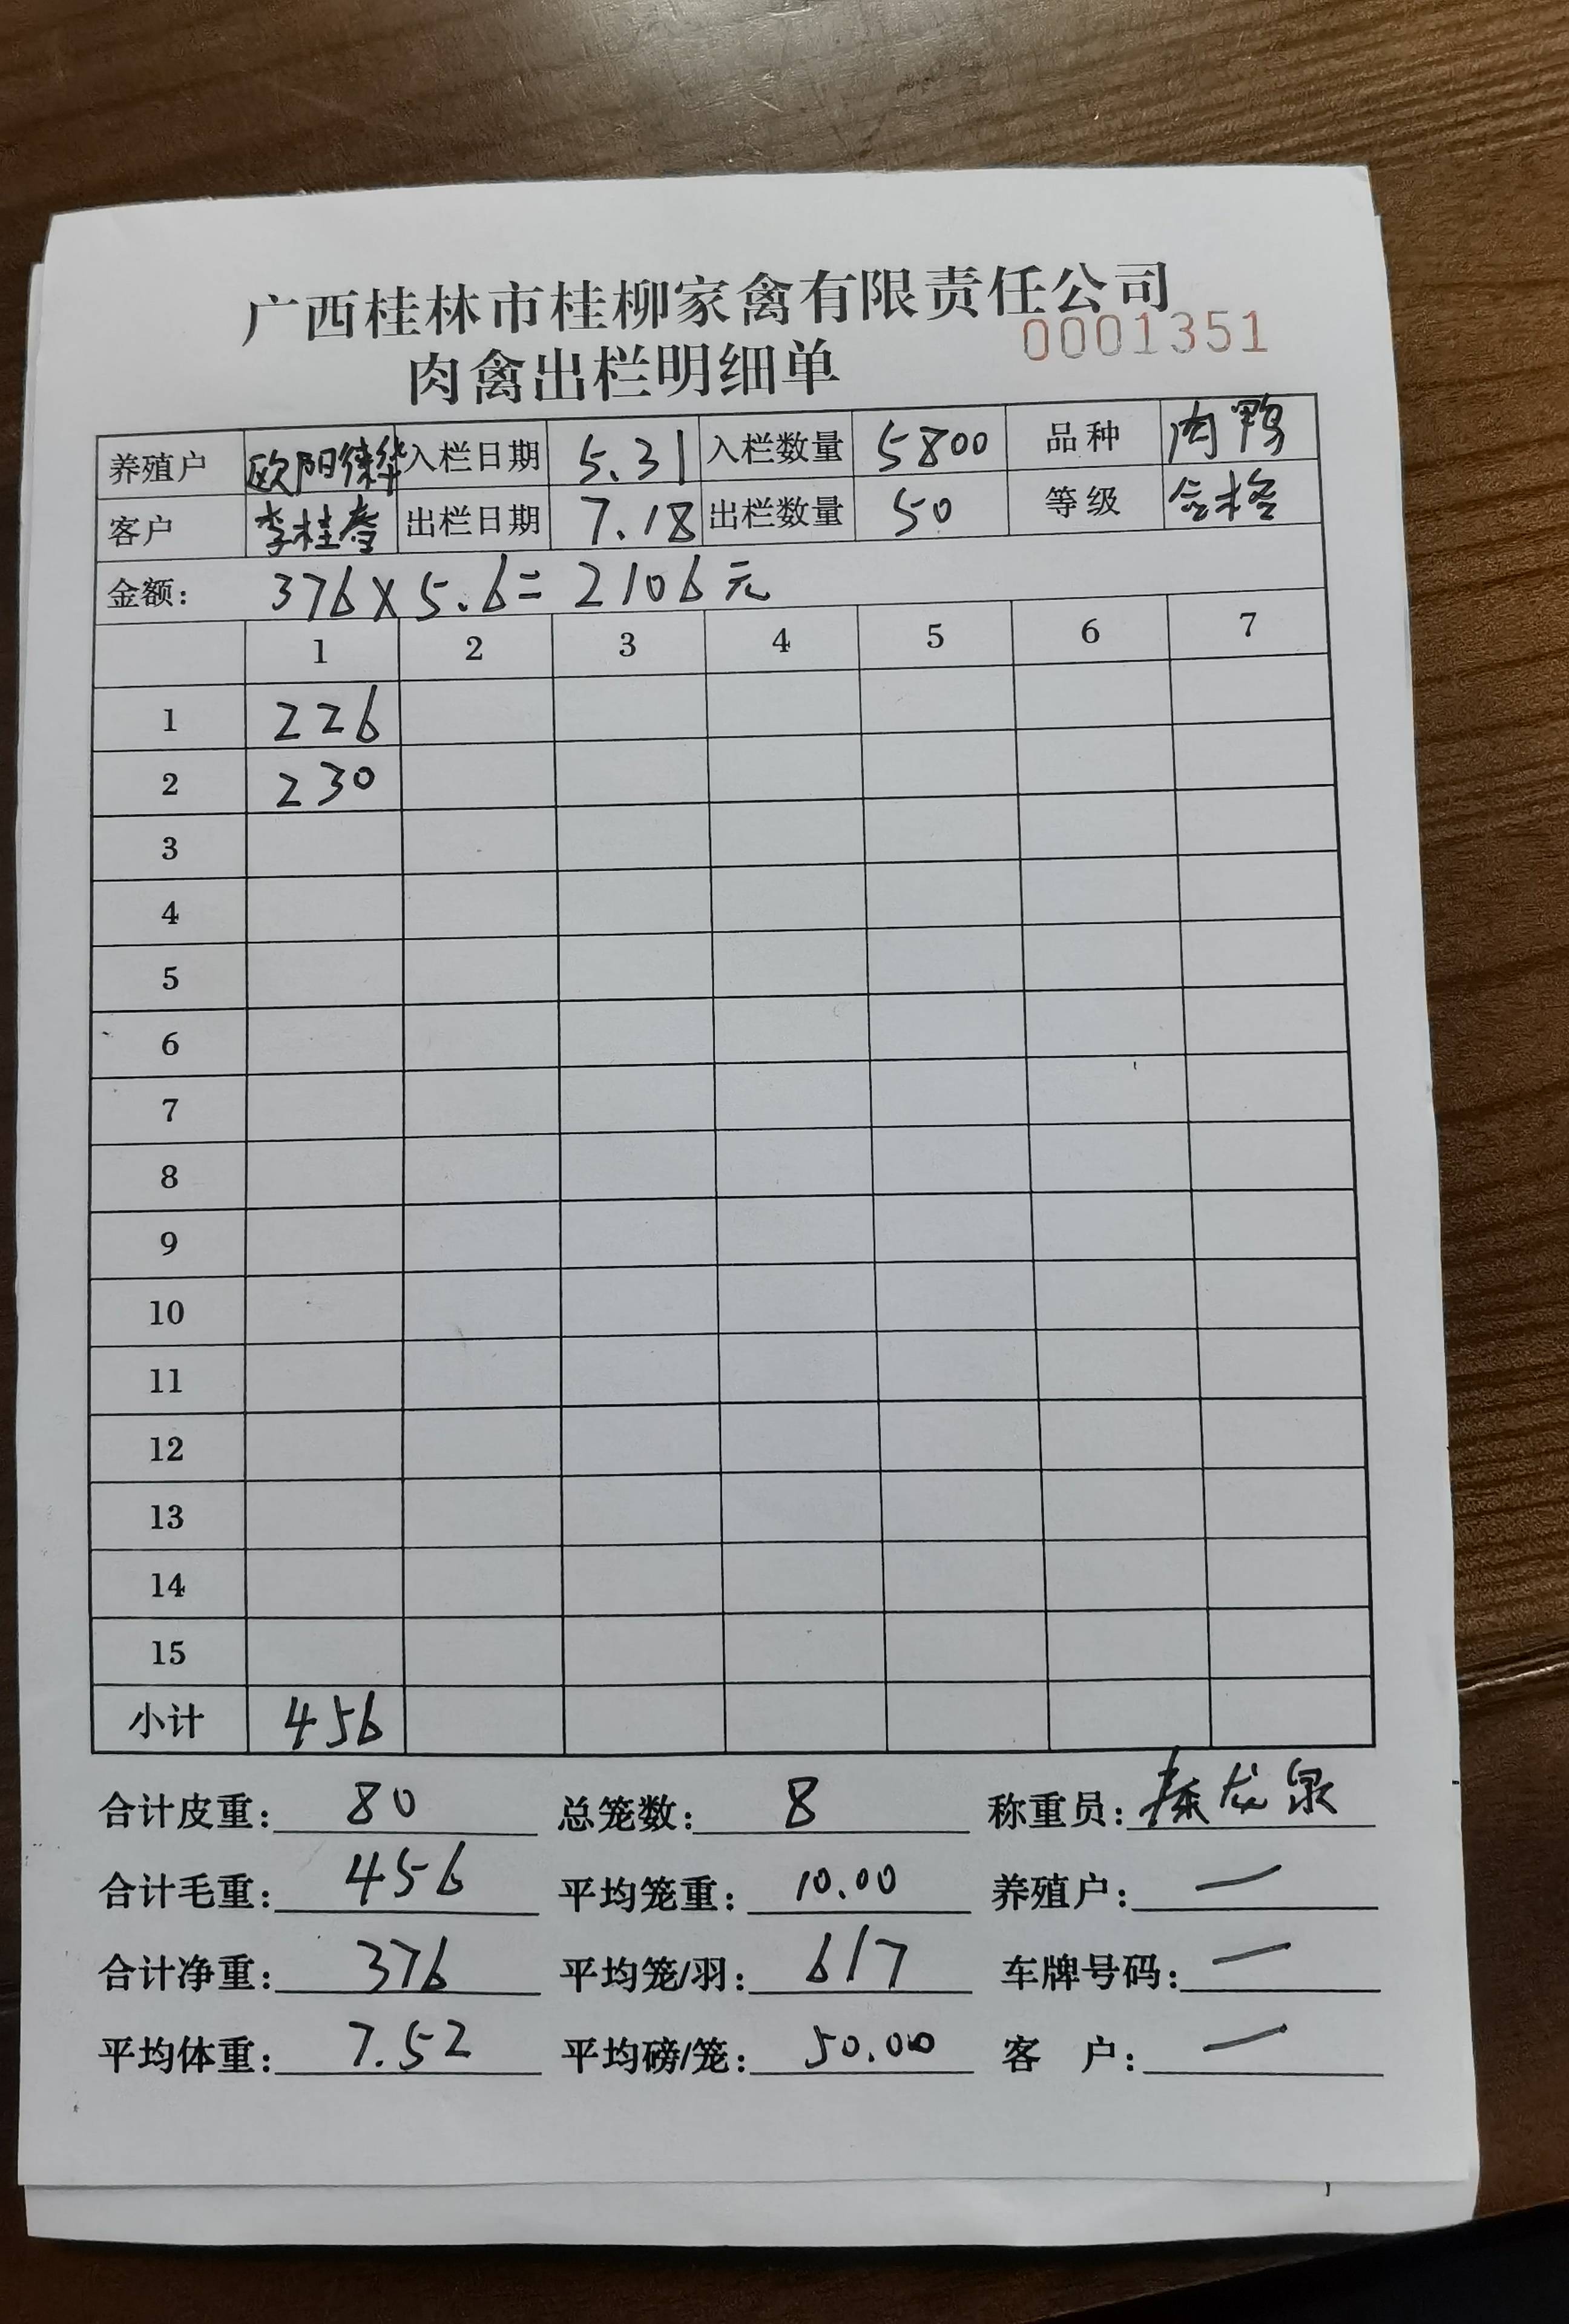 广西桂林市桂柳家禽有限责任公司
0001351
肉禽出栏明细单
养殖户 欧阳德华 入栏日期 5.31 入栏数量 5800 品种 肉鸭
客户 李桂 出栏日期 7.18 出栏数量 50 等级 合格
金额: 376×5.6=2106元
1 2 3 4 5 6 7
1 226
2 230
3
4
5
6
7
8
9
10
11
12
13
14
15
小计 456
合计皮重: 80 总笼数: 8 称重员: 龙泉
合计毛重: 456 平均笼重: 10.00 养殖户: —
合计净重: 376 平均笼/羽: 6/7 车牌号码: —
平均体重: 7.52 平均磅/笼: 50.00 客 户: —